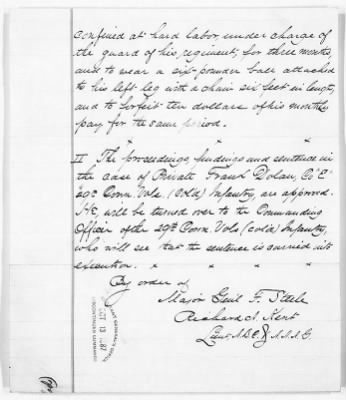 confined at hard labor, under charge of
the guard of his regiment, for three months,
and to wear a six-pounder ball attached
to his left leg with a chain six feet in length,
and to forfeit ten dollars of his monthly
pay for the same period.
II The proceedings, findings and sentence in
the case of Private Frank Dolan, Co "E"
29" Conn. Vols. (Cold) Infantry, are approved.
He, will be turned over to the Commanding
Officer of the 29th Conn. Vols (Cold) Infantry,
who will see that the sentence is carried into
execution.
By order of
Major Genl F. Steele
Richard S. Kent
Lieut A.D.C. & A.A.A.G.
OCT 13 1887